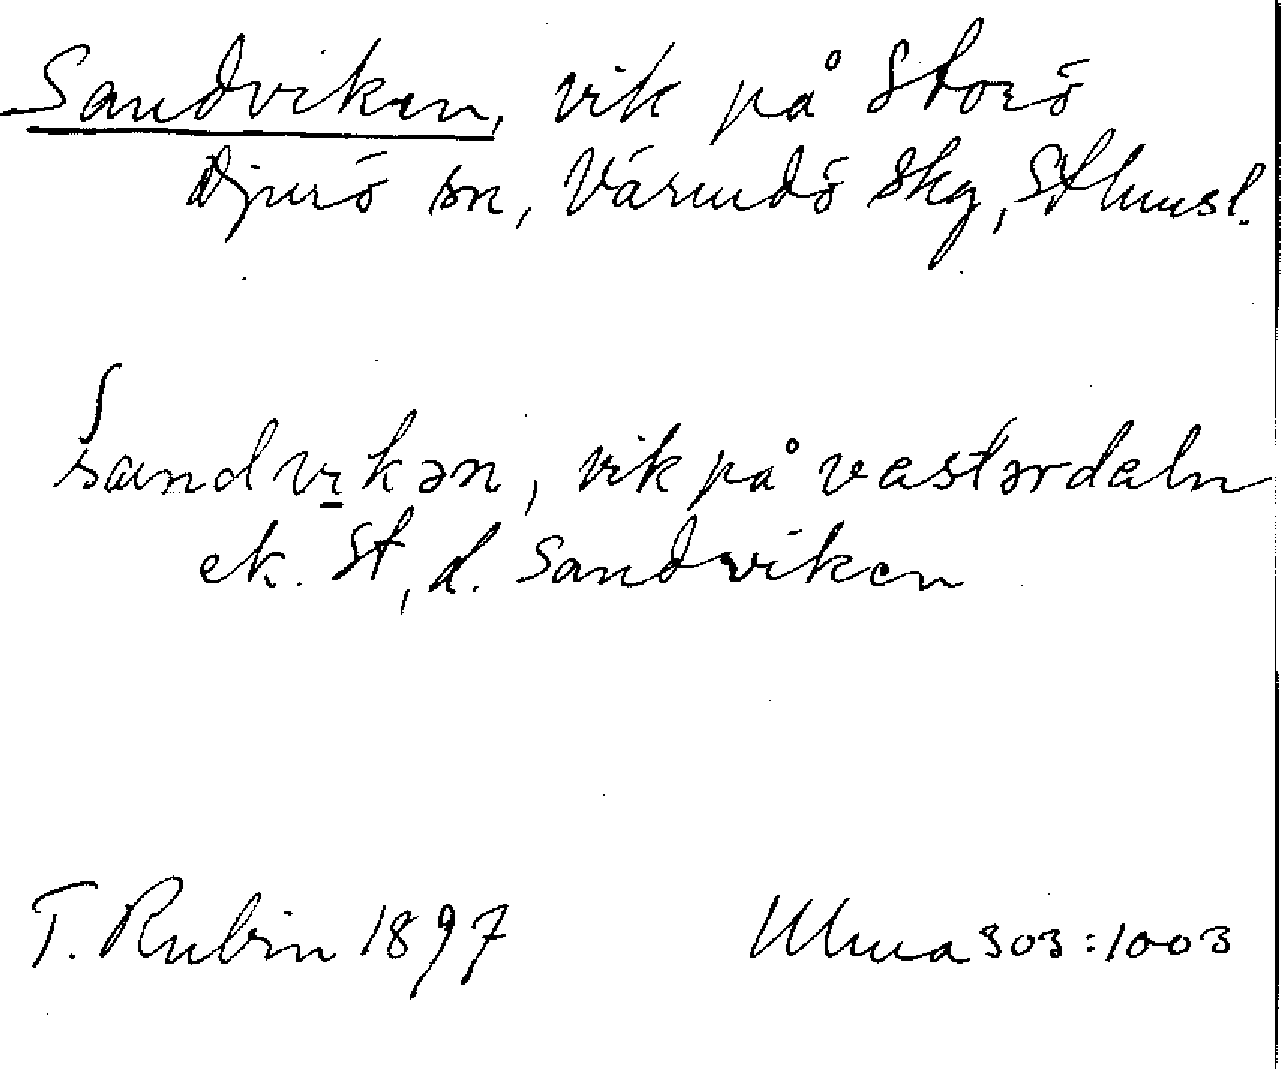 Sandviken, vik på Storö
Djurö sn, Värmdö skg, Sthmsl.
sandvikən, vik på vastərdaln
ek. St, d. Sandviken
T. Rubin 1897 Ulma 303:1003